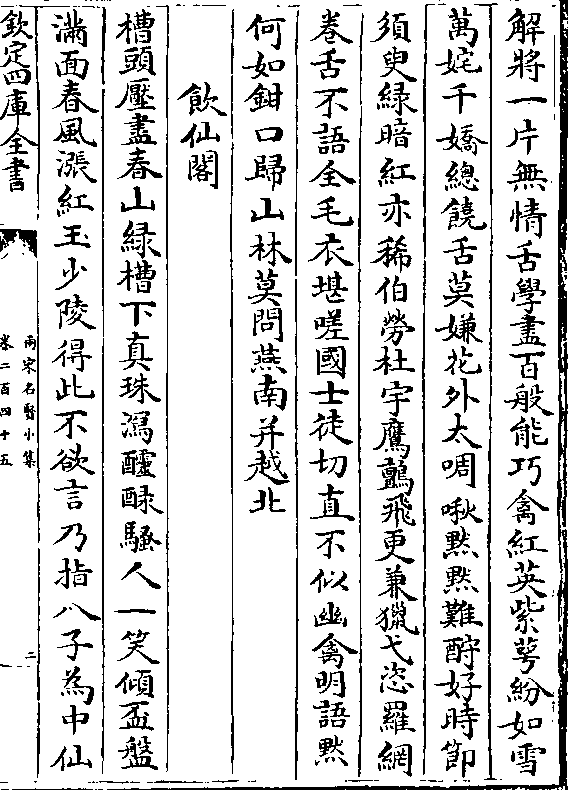 解將一片無情舌學盡百般能巧禽紅英紫萼紛如雪
萬姹千嬌總饒舌莫嫌花外太啁啾黙黙難酧好時節
須臾緑暗紅亦稀伯勞杜宇鷹鸇飛更兼獵弋恣羅網
卷舌不語全毛衣堪嗟國士徒切直不似幽禽明語黙
何如鉗口歸山林莫問燕南并越北
飲仙閣
槽頭壓盡春山緑槽下真珠瀉醽醁騷人一笑傾盃盤
滿面春風漲紅玉少陵得此不欲言乃指八子為中仙
欽定四庫全書
兩宋名賢小集
卷二百四十五
二